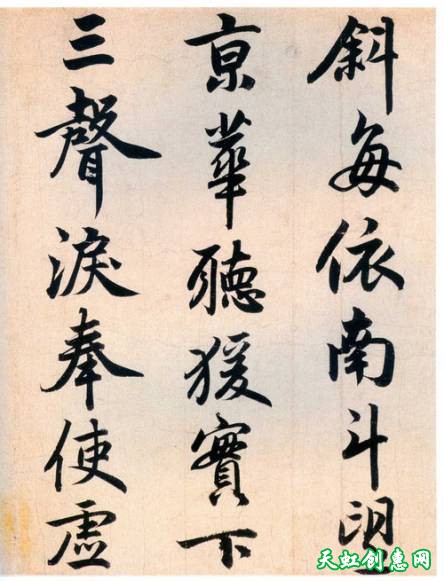 斜每依南斗望
京華聽猨實下
三聲淚奉使虛
天虹创惠网